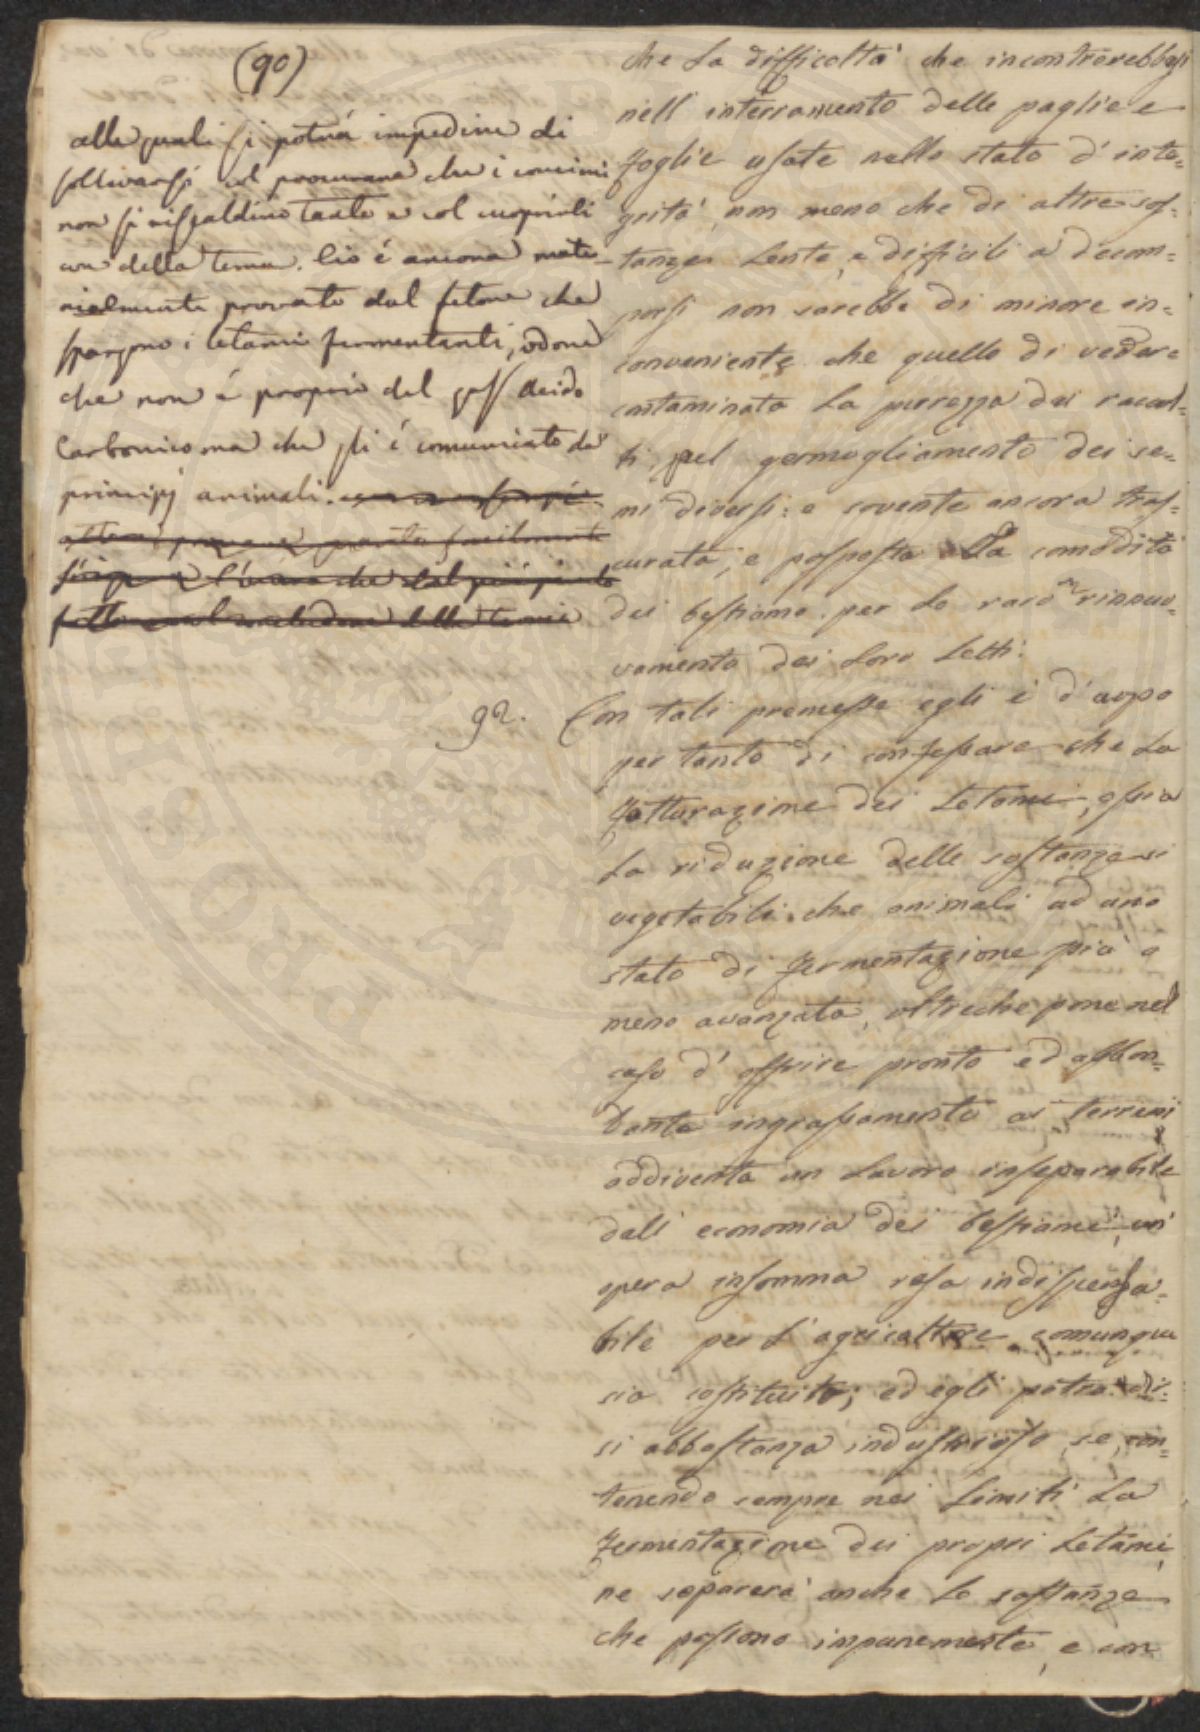 (90)
alle quali si potrà impedire di
sollevarsi col procurare che i concimi
non si riscaldino tanto e col cuoprirli
con della terra. Ciò é ancora mate-
rialmente provato dal fetore che
spargono i letami fermentanti, odore
che non é proprio del gass acido
Carbonico ma che gli é comunicato da'
principj animali.
che la difficoltà che incontrerebbesi
nell' interramento delle paglie e
foglie usate nello stato d' inte=
grità, non meno che di altre sos=
tanze lente, e difficili a decom=
porsi non sarebbe di minore in=
conveniente che quello di veder=
contaminata la purezza dei racol=
ti, pel germogliamento dei se=
mi diversi: e sovente ancora tras=
curata, e posposta la comodità
dei bestiame per lo raro rinnuo=
vamento dei loro letti:
92. Con tali premesse egli é d' uopo
per tanto di confessare che la
fatturazione dei letami, ossia
la riduzione delle sostanze si
vegetabili che animali ad uno
stato di fermentazione più o
meno avanzata, oltreche pone nel
caso d' offrire pronto ed abbon=
dante ingrassamento ai terreni
addiventa un lavoro inseparabile
dall' economia dei bestiami, un'
opera insomma resa indispensa=
bile per l' agricoltore comunque
sia costituito; ed egli potrà dir=
si abbastanza industrioso se, con=
tenendo sempre nei limiti la
fermentazione dei propri letami,
ne separerà anche le sostanze
che possono impunemente, e con